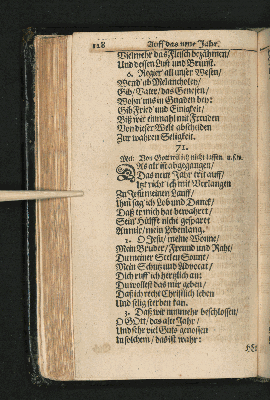 128 Auff das neue Jahr.
Vielmehr das Fleisch bezähmen/
Und dessen Lust und Brunst.
6. Regier all unser Wesen/
Wend ab Melancholey/
Gib/ Vater/ das Genesen/
Wohn uns in Gnaden bey:
Gib Fried und Einigkeit/
Biß wir einmahl mit Freuden
Von dieser Welt abscheiden
Zur wahren Seligkeit.
71.
Mel: Von Gott wil ich nicht lassen. u.s.w.
Das alt ist abgegangen/
Das neu Jahr tritt auff/
Ist nicht ich mit Verlangen
Zu Jesu meinen Lauff/
Ihm sag ich Lob und Danck/
Daß er mich hat bewahret/
Sein Hülfft nicht gesparet
An mir/ mein Lebenlang.
2. O Jesu/ meine Wonne/
Mein Bruder/ Freund und Raht/
Du meiner Seelen Sonne/
Mein Schutz und Advocat/
Dich ruff ich hertzlich an:
Du wollest das mir geben/
Daß ich recht Christlich leben
Und selig sterben kan.
3. Daß wir nunmehr beschlossen/
O Gott/ das alte Jahr/
Und sehr viel Guts genossen
In solchem/ das ist wahr: